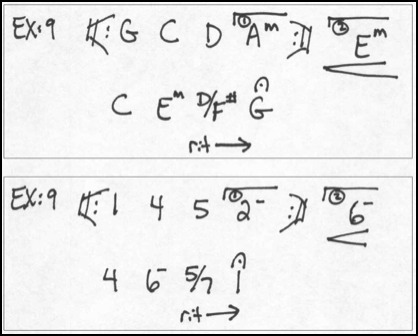 EX:9 G C D ① Am ② Em
C Em D/F# G
rit
EX:9 1 4 5 ① 2- ② 6-
4 6- 5/7 1
rit